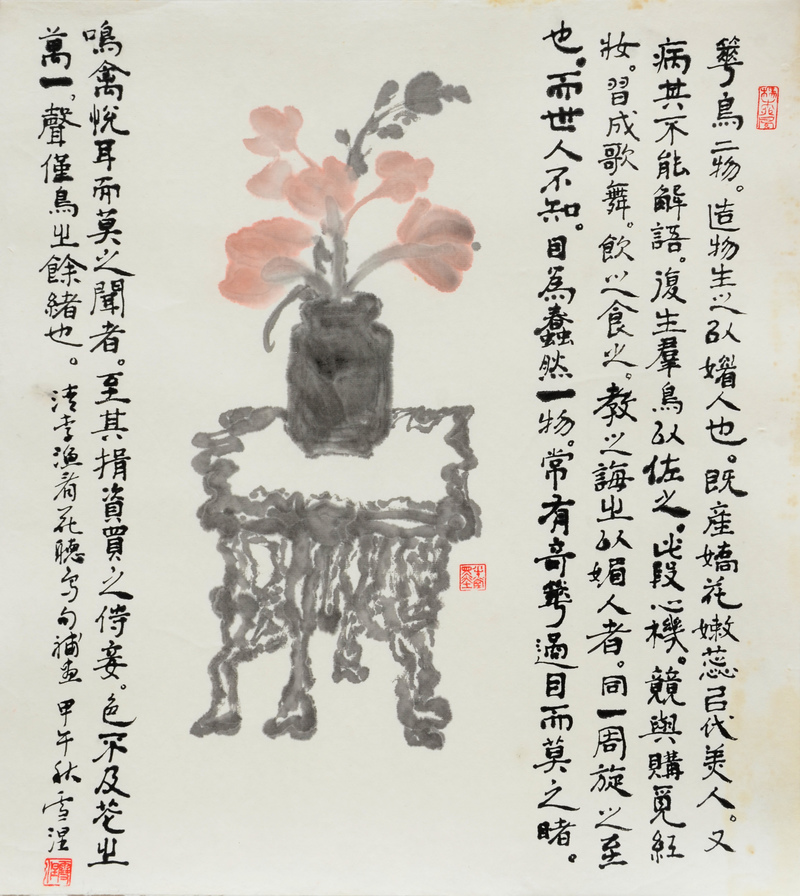 花鳥二物。造物生之以媚人也。既產嬌花嫩蕊以代美人。又
病其不能解語。復生羣鳥以佐之。此段心機。競與購覓紅
妝。習成歌舞。飲之食之。教之誨之以媚人者。同一周旋之至
也。而世人不知。目為蠢然一物。常有奇花過目而莫之睹。
鳴禽悅耳而莫之聞者。至其捐資買之侍妾。色不及花之
萬一，聲僅鳥之餘緒也。清李漁看花聽鳥句補畫 甲午秋 雪涅